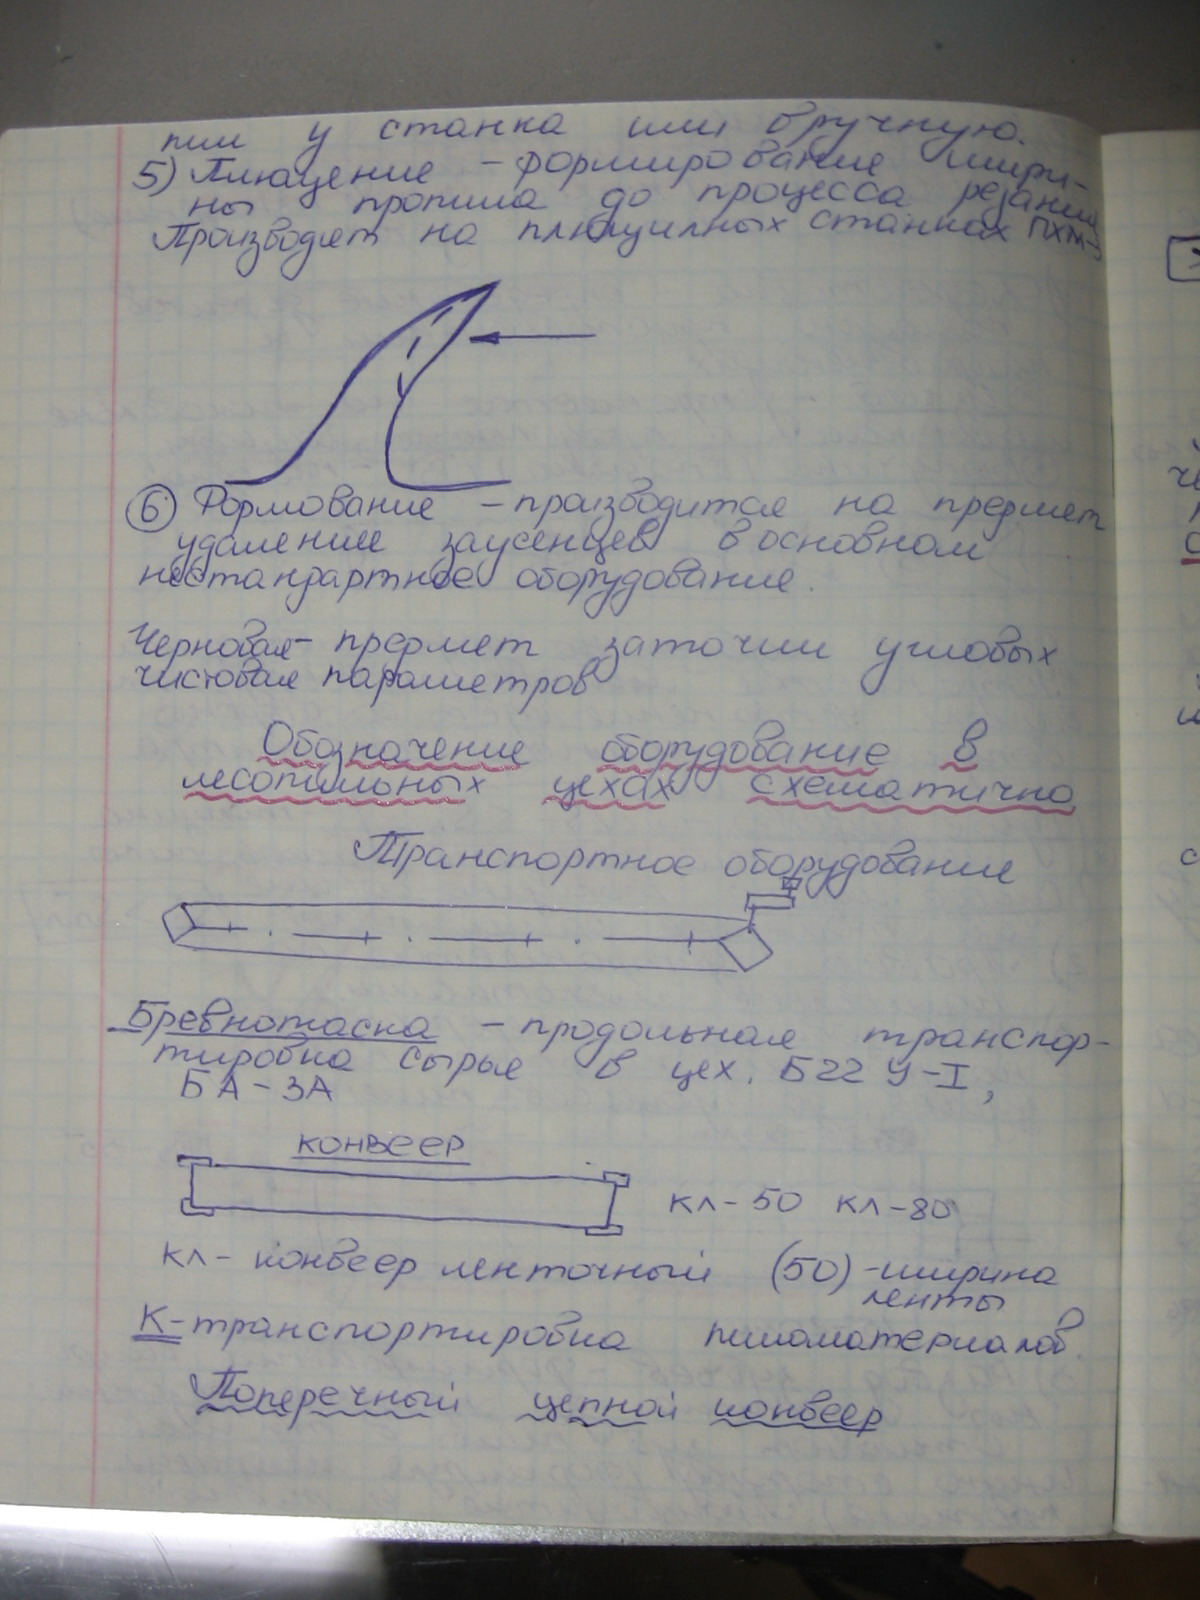 пил у станка или вручную.
5) Плющение - формирование шири-
ны пропила до процесса резания
Производят на плющилных станках ПХМ-
6) Формование - производится на предмет
удаление заусенцев в основном
нестандартное оборудование.
Черновая - предмет заточки угловых
чистовая параметров
Обозначение оборудование в
лесопильных цехах схематично
Транспортное оборудование
Бревнотаска - продольная транспор-
тировка сырья в цех. Б22 У-I,
БА-3А
конвеер
КЛ-50 КЛ-80
КЛ- конвеер ленточный (50) -ширина
ленты
К-транспортировка пиломатериалов.
Поперечный цепной конвеер